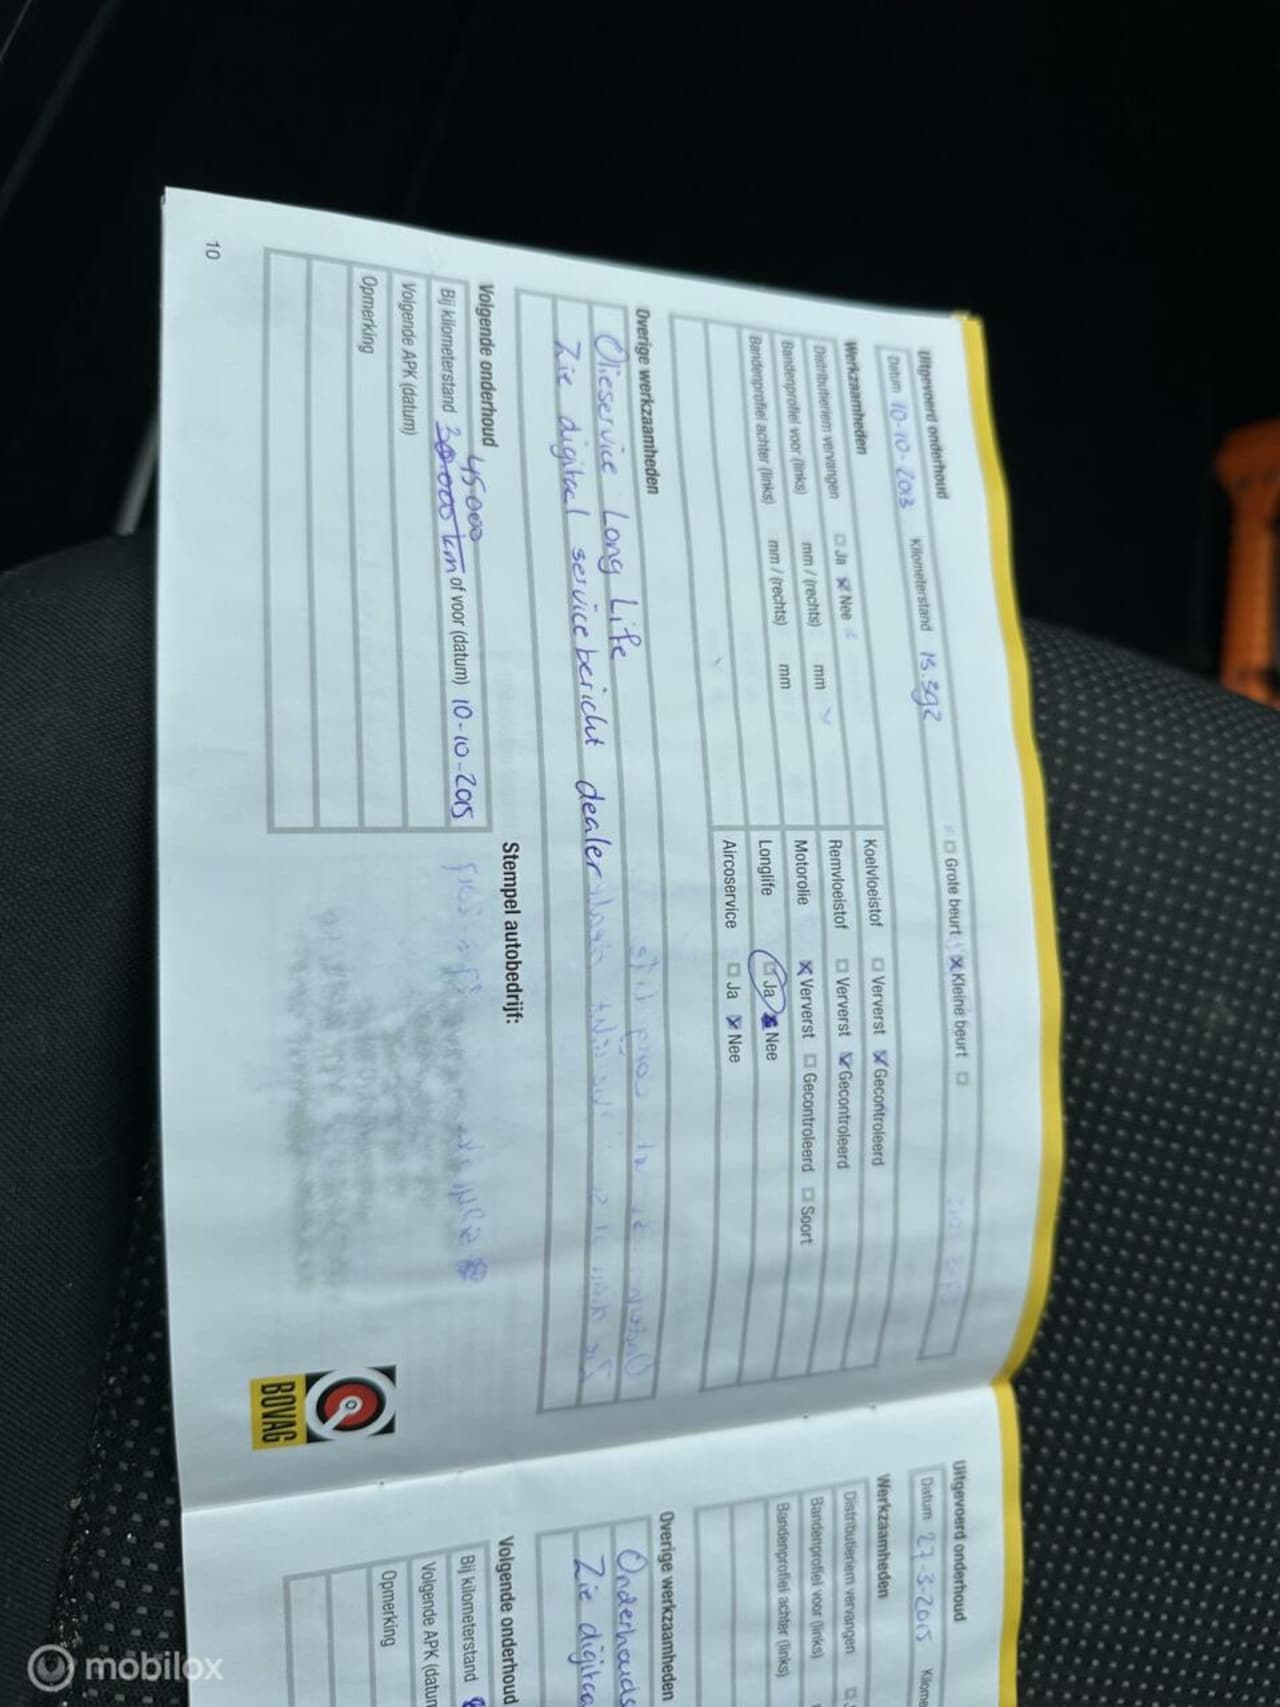 Uitgevoerd onderhoud
Datum 10-10-2013 Kilometerstand 15.392 □ Grote beurt ☒ Kleine beurt □
Werkzaamheden
Distributieriem vervangen □ Ja ☒ Nee
Bandenprofiel voor (links) mm / (rechts) mm
Bandenprofiel achter (links) mm / (rechts) mm
Koelvloeistof □ Ververst ☒ Gecontroleerd
Remvloeistof □ Ververst ☒ Gecontroleerd
Motorolie ☒ Ververst □ Gecontroleerd □ Soort
Longlife □ Ja ☒ Nee
Aircoservice □ Ja ☒ Nee
Overige werkzaamheden
Olieservice Long Life
Zie digitaal servicebericht dealer
Volgende onderhoud
45000
Bij kilometerstand 30.000 km of voor (datum) 10-10-2015
Volgende APK (datum)
Opmerking
Stempel autobedrijf:
BOVAG
10
Uitgevoerd onderhoud
Datum 27-3-2015 Kilome
Werkzaamheden
Distributieriem vervangen □
Bandenprofiel voor (links)
Bandenprofiel achter (links)
Overige werkzaamheden
Onderhouds
Zie digitaa
Volgende onderhoud
Bij kilometerstand
Volgende APK (datum
Opmerking
mobilox